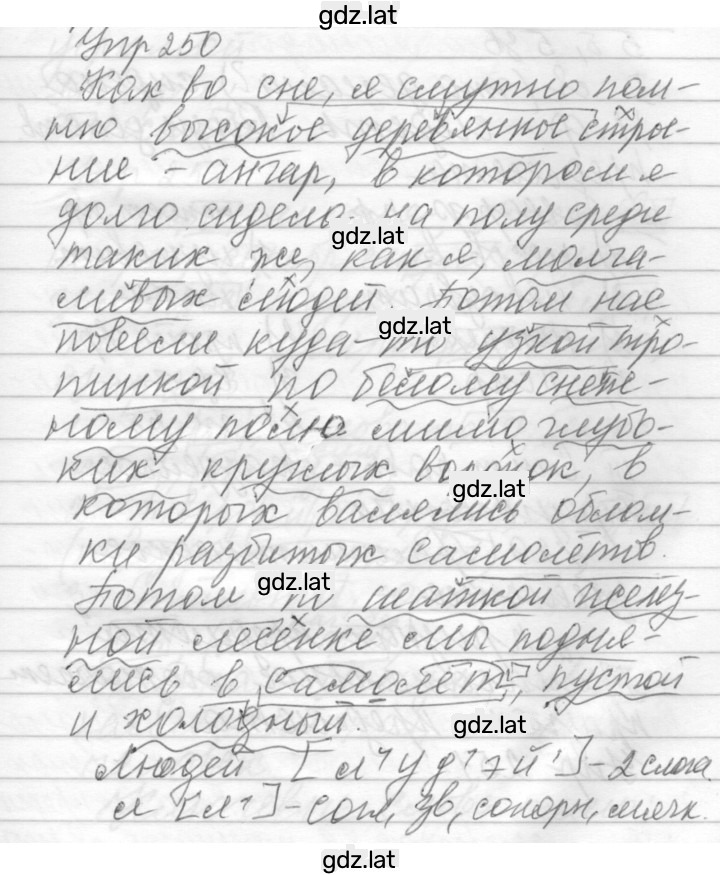 gdz.lat
Упр 250
Как во сне, я смутно пом-
ню высокое деревянное строе-
ние - ангар, в котором я
долго сидела на полу среди
gdz.lat
таких же, как я, молча-
ливых людей. Потом нас
gdz.lat
повели куда-то узкой тро-
пинкой по белому снеж-
ному полю мимо глубо-
ких круглых воронок, в
gdz.lat
которых валялись облом-
ки разбитых самолётов.
gdz.lat
Потом по шаткой желез-
ной лесенке мы подня-
лись в самолёт, пустой
и холодный.
gdz.lat
Людей [л'уд'эй'] - 2 слога.
л [л'] - согл, зв, сонорн, мягк.
gdz.lat